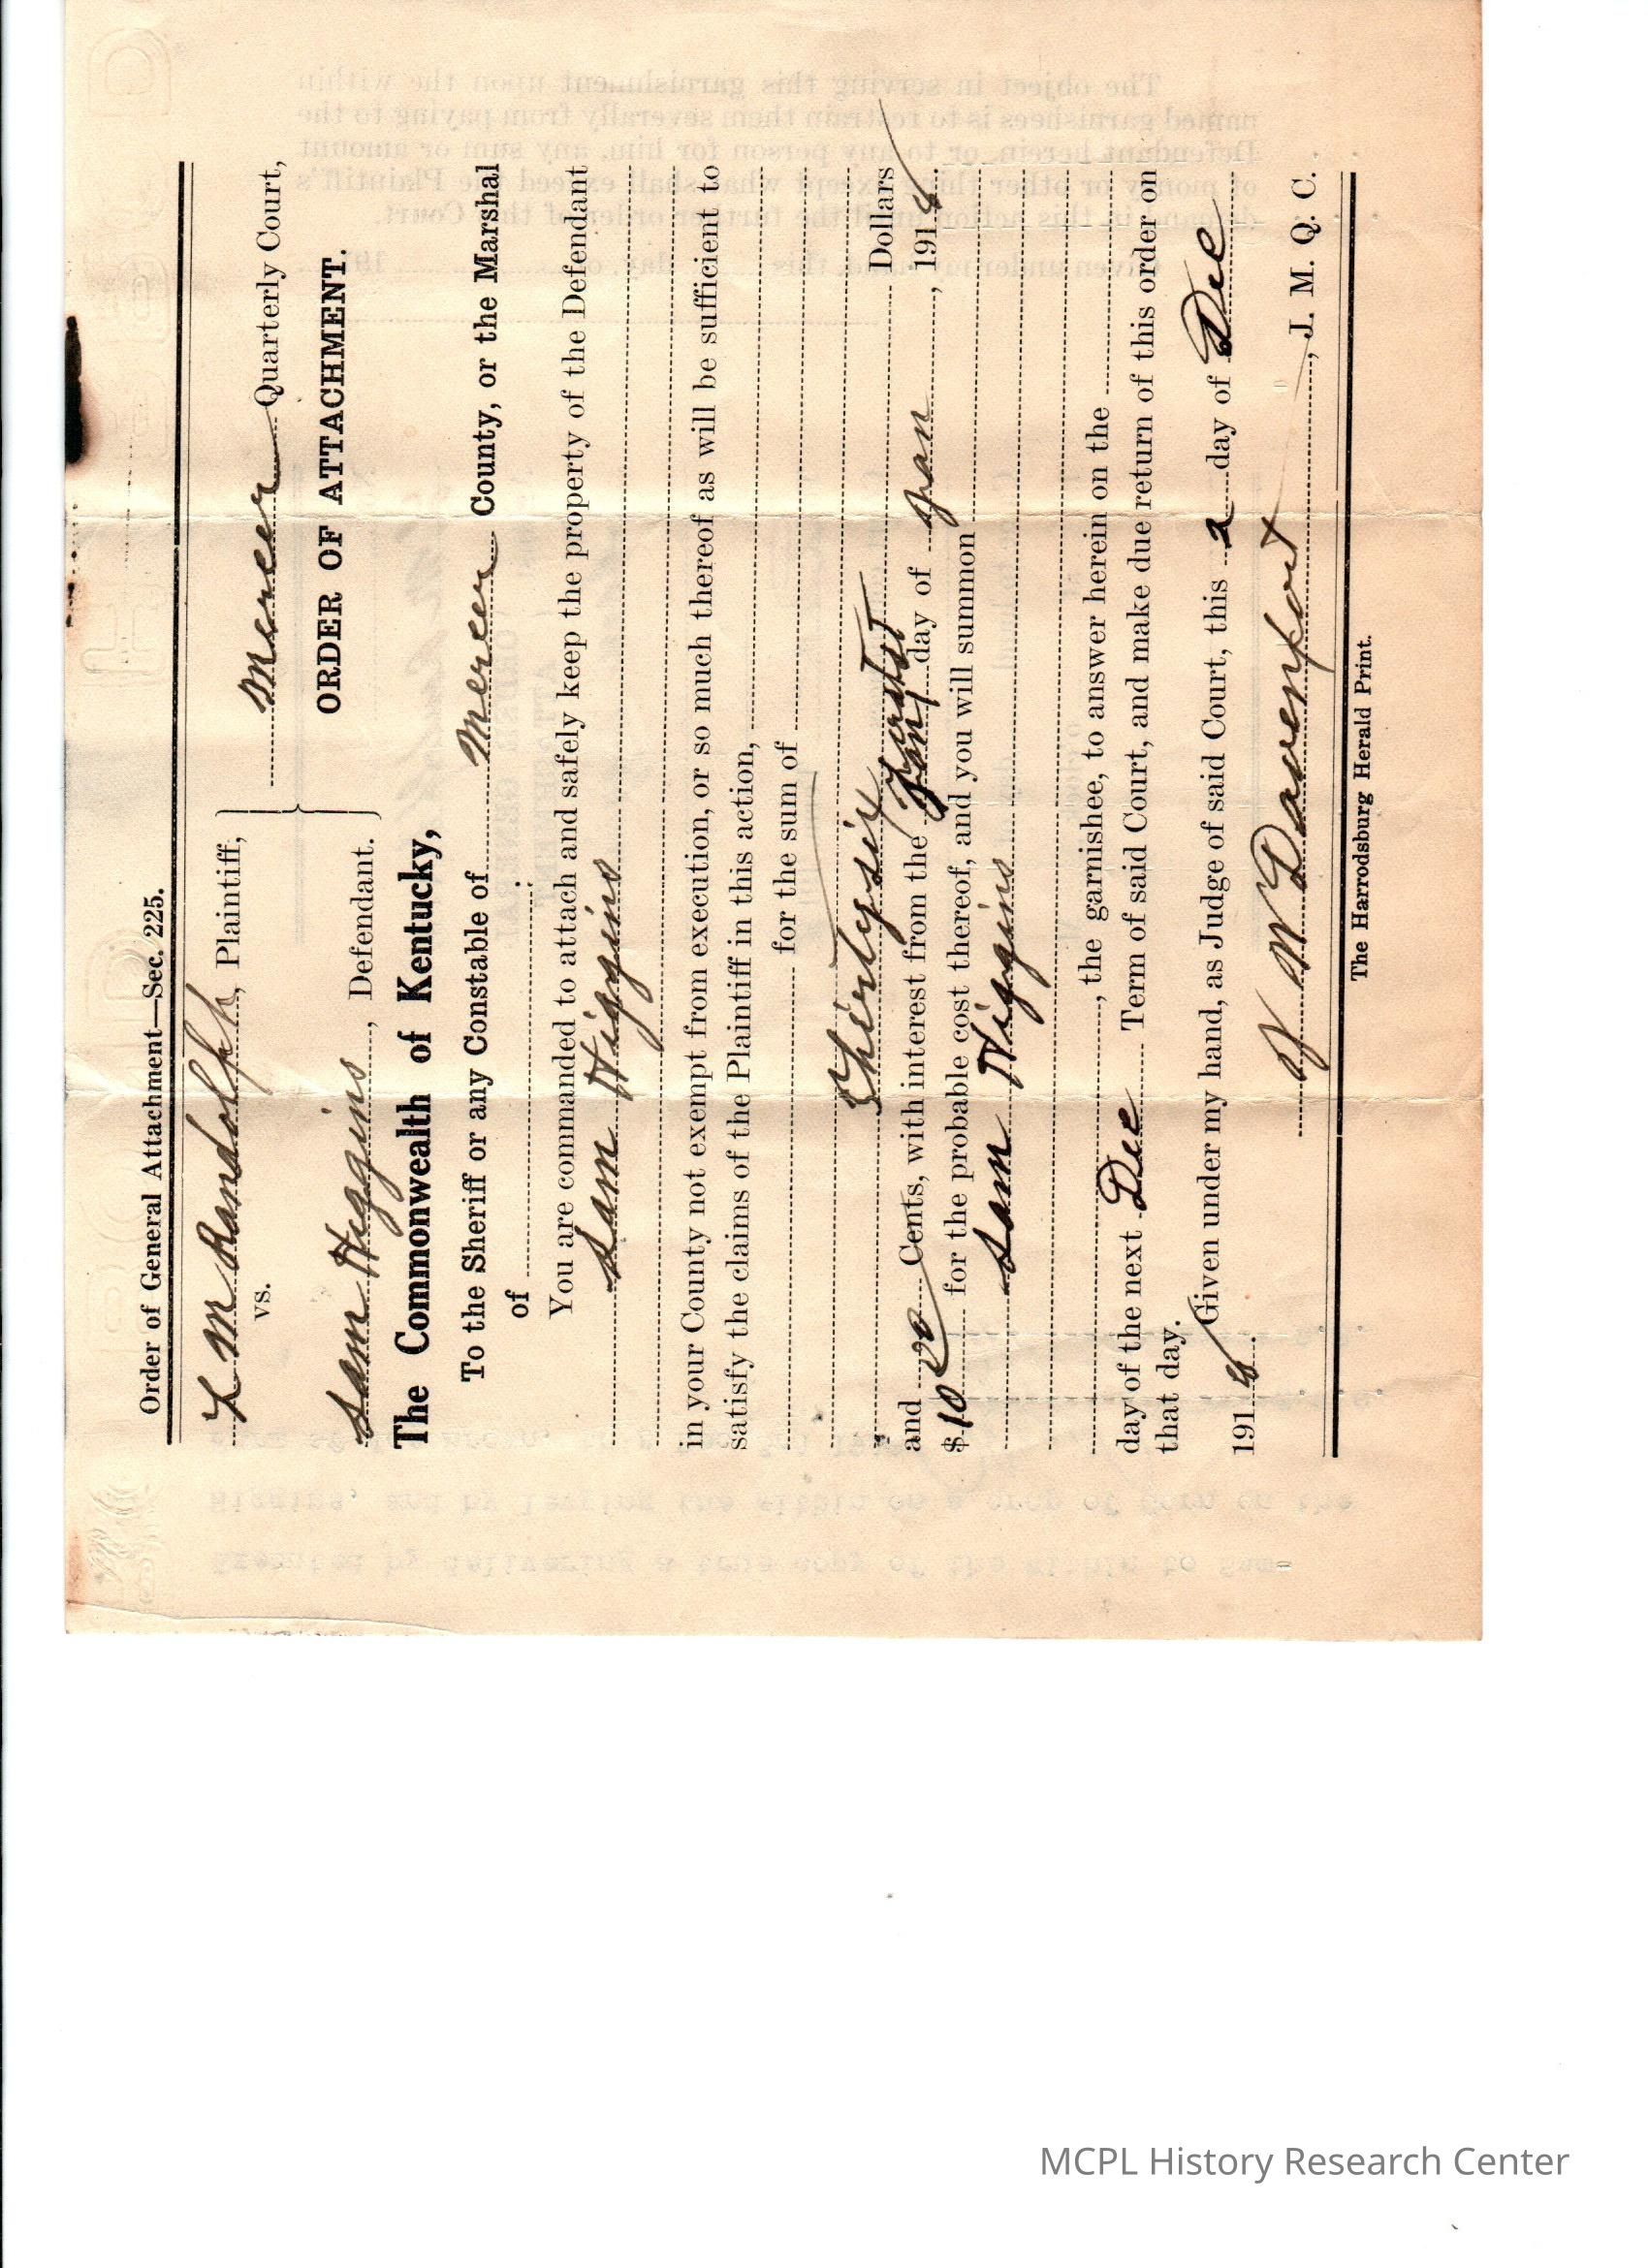 Order of General Attachment—Sec. 225.
L M Randolph, Plaintiff,
vs.
Sam Higgins, Defendant.
Mercer Quarterly Court,
ORDER OF ATTACHMENT.
The Commonwealth of Kentucky,
To the Sheriff or any Constable of Mercer County, or the Marshal
of
You are commanded to attach and safely keep the property of the Defendant
Sam Higgins
in your County not exempt from execution, or so much thereof as will be sufficient to
satisfy the claims of the Plaintiff in this action,
for the sum of
Thirtysix Dollars
and Cents, with interest from the day of Jan, 191
$10 00 for the probable cost thereof, and you will summon
Sam Higgins
, the garnishee, to answer herein on the
day of the next Dec Term of said Court, and make due return of this order on
that day.
Given under my hand, as Judge of said Court, this 2 day of Dec
191
Davenport, J. M. Q. C.
The Harrodsburg Herald Print.
MCPL History Research Center